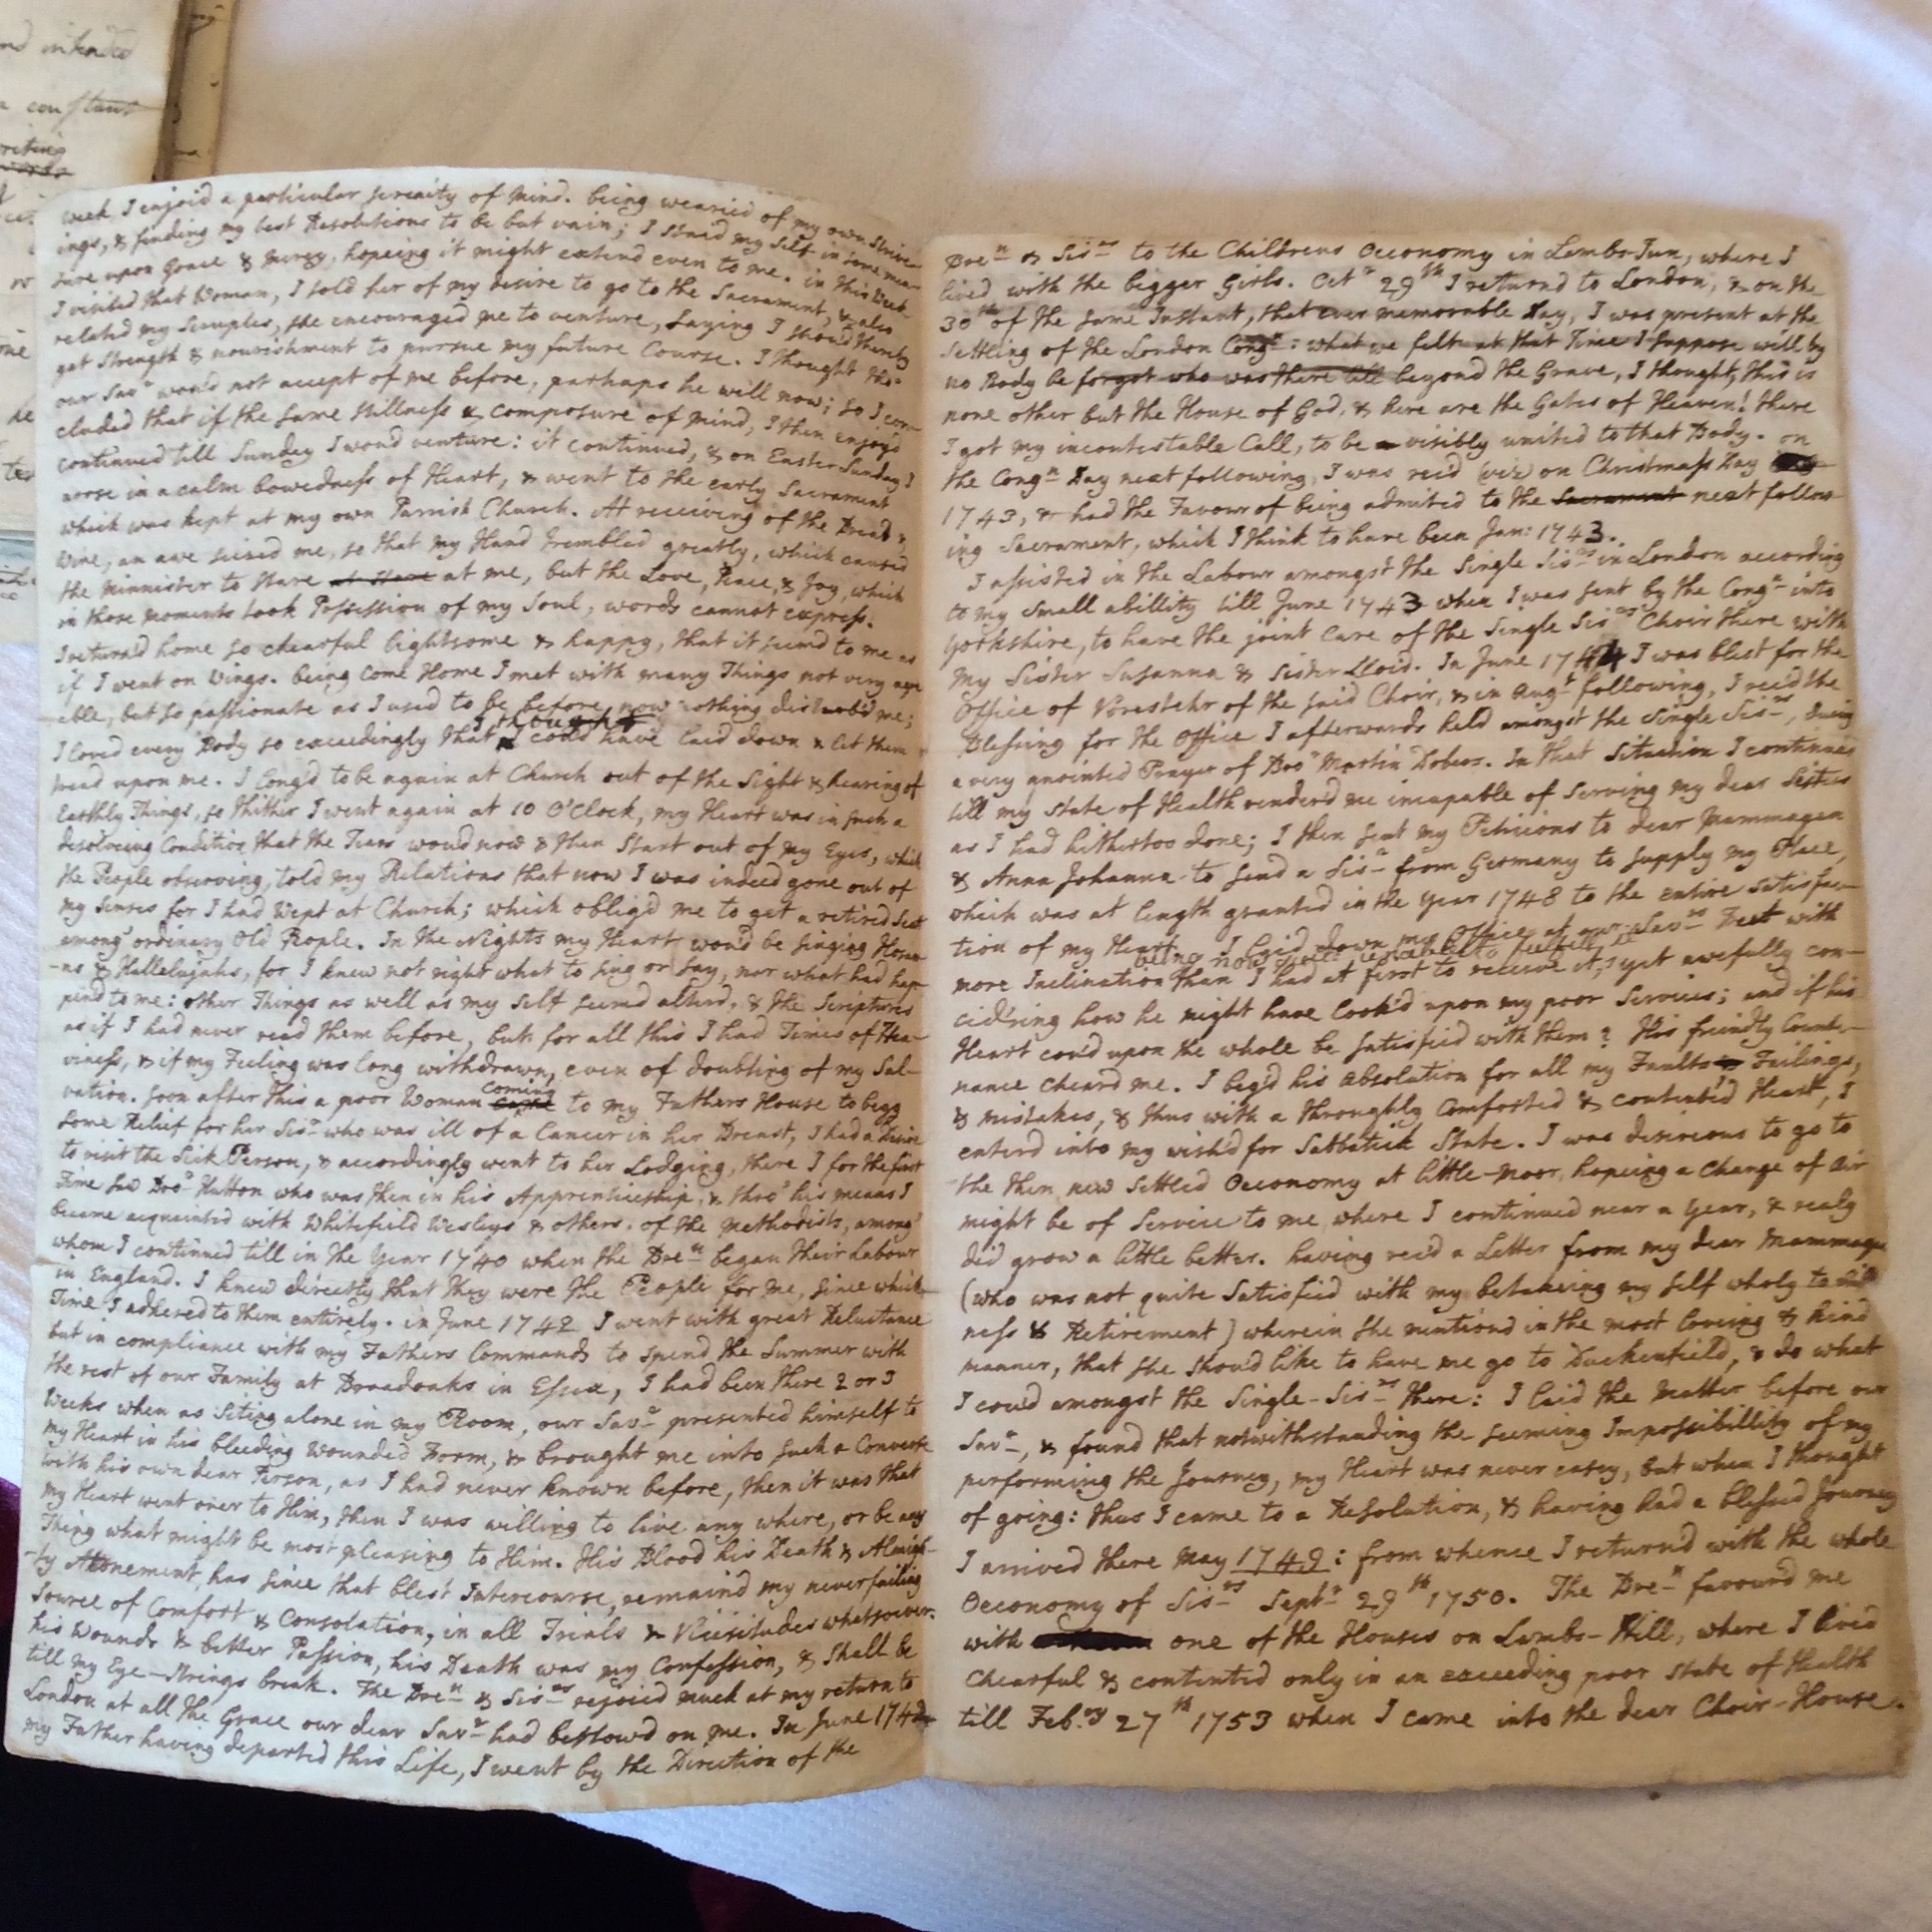 nd intended
a constant
writing
works
week I enjoid a particular serenity of Mind. being wearied of my own Strive-
ings, & finding my best Resolutions to be but vain; I staid my self in some mea-
sure upon Grace & Mercy, hopeing it might extend even to me. in this Week
I visited that Woman, I told her of my desire to go to the Sacrament, & also
related my Scruples, she encouraged me to venture, saying I should thereby
get Strength & nourishment to pursue my future Course. I thought tho'
our Savr would not accept of me before, perhaps he will now; so I con-
cluded that if the same stillness & composure of mind, I then enjoyd
continued till Sunday I woud venture: it continued, & on Easter Sunday I
arose in a calm bowedness of Heart, & went to the early Sacrament
which was kept at my own Parrish Church. At receiving of the Bread &
Wine, an awe seised me, so that my Hand trembled greatly, which caused
the Minnister to stare at stare at me, but the Love, Peace, & Joy, which
in those moments took Possession of my Soul, words cannot express.
I returnd home so chearful lightsome & happy, that it seemd to me as
if I went on Wings. being come Home I met with many Things not very agre
able, but so passionate as I used to be before, now nothing disturbd me;
I thought
I loved every Body so exceedingly that I coud have laid down & let them
tread upon me. I longd to be again at Church out of the Sight & hearing of
Earthly Things, so thither I went again at 10 O'Clock, my Heart was in such a
desolveing Condition that the Tears would now & then Start out of my Eyes, which
the People observing, told my Relations that now I was indeed gone out of
my senses for I had Wept at Church; which obligd me to get a retired Seat
among' ordinary Old People. In the Nights my Heart woud be singing Hosan-
-na's & Hallelujahs, for I knew not right what to sing or say, nor what had hap-
pend to me: other Things as well as my self seemd alterd, & the Scriptures
as if I had never read them before, but for all this I had Times of Hea-
viness, & if my Feeling was long withdrawn, even of doubting of my Sal-
vation. soon after this a poor Woman coming to my Fathers House to begg
some Relief for her Sisr who was ill of a Cancer in her Breast, I had a desire
to visit the Sick Person, & accordingly went to her Lodging, there I for the first
Time saw Bror Hutton who was then in his Apprenticeship, & thro' his means I
became acquainted with Whitefield Wesleys & others. of the Methodists, among'
whom I continued till in the Year 1740 when the Bren began their Labour
in England. I knew directly that they were the People for me, since which
Time I adhered to them entirely. in June 1742 I went with great Reluctance
but in compliance with my Fathers Commands to spend the Summer with
the rest of our Family at Broadoaks in Essex, I had been there 2 or 3
Weeks when as Siting alone in my Room, our Savr presented himself to
my Heart in his bleeding Wounded Form, & brought me into such a Converse
with his own dear Person, as I had never known before, then it was that
my Heart went over to Him, then I was willing to live any where, or be any
Thing what might be most pleasing to Him. His Blood his Death & Almigh-
-ty Atonement, has since that blest Intercourse, remaind my neverfailing
Source of Comfort & Consolation, in all Trials & Vicisitudes whatsoever.
his Wounds & better Passion, his Death was my Confession, & shall be
till my Eye-strings break. The Bren & Sisrs rejoicd much at my return to
London at all the Grace our dear Savr had bestowd on me. In June 174
my Father having departed this Life, I went by the Direction of the
Bren & Sisrs to the Childrens Oeconomy in Lambs-Inn, where I
lived with the bigger Girls. Octr 29th I returnd to London, & on the
30th of the same Instant, that ever memorable Day, I was present at the
Settling of the London Congn: what we felt at that Time I suppose will by
no Body be forgot who was there till beyond the Grave, I thought, this is
none other but the House of God, & here are the Gates of Heaven! there
I got my incontestable Call, to be visibly united to that Body. on
the Congn Day next following, I was recd (viz) on Christmass Day
1743, & had the Favour of being admited to the Sacrament next follow-
ing Sacrament, which I think to have been Jan: 1743.
I assisted in the Labour amongst the Single Sisrs in London according
to my small abillity till June 1743 when I was sent by the Congn into
Yorkshire, to have the joint Care of the Single Sisrs Choir there with
my Sister Susanna & Sister Lloid. In June 1744 I was blest for the
Office of Vorstehr of the said Choir, & in Augt following, I recd the
Blessing for the Office I afterwards held amongst the Single Sisrs, during
a very anointed Prayer of Bror Martin Dobers. In that Situation I continued
till my state of Health renderd me incapable of serving my dear Sisters
as I had hithertoo done; I then sent my Peticions to dear Mammagen
& Anna Johanna to send a Sisr from Germany to supply my Place,
which was at length granted in the Year 1748 to the entire satisfac-
tion of my Heart. I laid down my Office at our Savrs Feet with
being now
more Inclination than I had at first to receive it, yet awefully con-
cid'ring how he might have look'd upon my poor Services; and if his
Heart coud upon the whole be satisfied with them? His friendly Counte-
nance cheard me. I beg'd his Absolution for all my Faults, Failings,
& mistakes, & thus with a throughly Comforted & contented Heart, I
enterd into my wishd for Sabbatick State. I was desireous to go to
the then new settled Oeconomy at little-moor, hopeing a change of air
might be of Service to me, where I continued near a Year, & realy
did grow a little better. having recd a Letter from my dear Mammagen
(who was not quite Satisfied with my betakeing my self wholy to
ness & Retirement) wherein she mentiond in the most loveing & kind
manner, that she should like to have me go to Duckenfield, & do what
I coud amongst the Single-Sisrs there: I laid the matter before our
Savr, & found that notwithstanding the seeming Impossibillity of my
performing the Journey, my Heart was never easey, but when I thought
of going: thus I came to a Resolution, & having had a blessed Journey
I arrived there May 1749: from whence I returnd with the whole
Oeconomy of Sisrs Septr 29th 1750. The Bren favourd me
with one of the Houses on Lambs-Hill, where I lived
Chearful & contented only in an exceeding poor state of Health
till Feb.ry 27th 1753 when I came into the dear Choir-House.